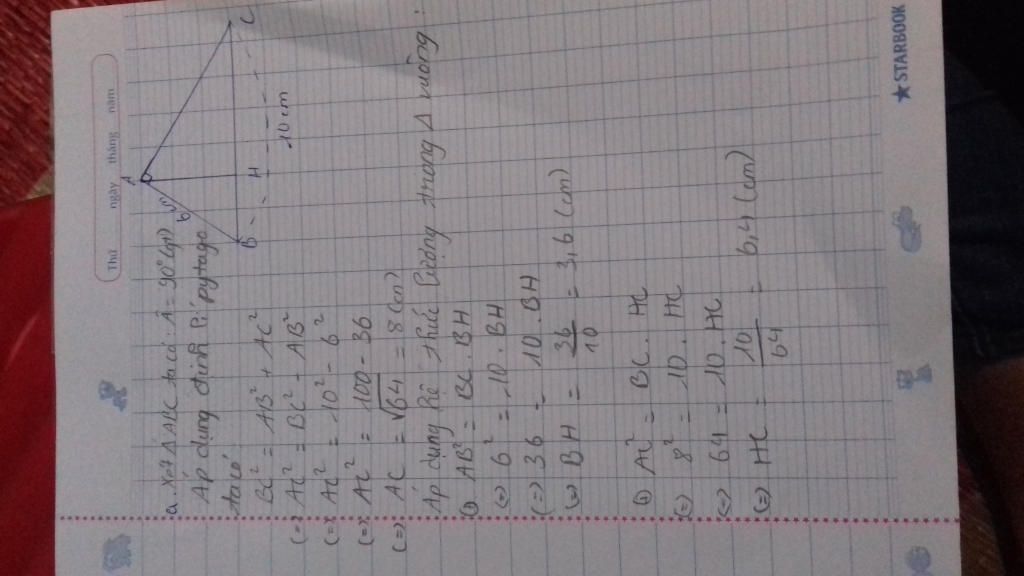 Thứ ngày tháng năm
a. Xét Δ ABC ta có Â = 90° (gt)
Áp dụng định lí pytago
ta có
BC² = AB² + AC²
(=) AC² = BC² - AB²
(=) AC² = 10² - 6²
(=) AC² = 100 - 36
(=) AC = √64 = 8 (cm)
A
B
H
C
10 cm
Áp dụng hệ thức lượng trong Δ vuông :
AB² = BC . BH
(=) 6² = 10 . BH
(=) 36 = 10 . BH
(=) BH = 36/10 = 3,6 (cm)
AC² = BC . HC
(=) 8² = 10 . HC
(=) 64 = 10 . HC
(=) HC = 10/64 = 6,4 (cm)
★STARBOOK